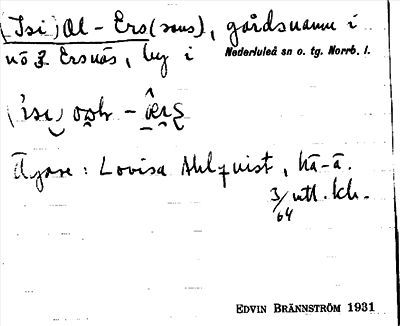 (Isi)Ol-Ers(sons), gårdsnamn i
nö 3 Ersnäs, by i Nederluleå sn o. tg. Norrb. l.
Ägare: Lovisa Ahlqvist, hä-å.
3/64 utt. kh.
EDVIN BRÄNNSTRÖM 1931